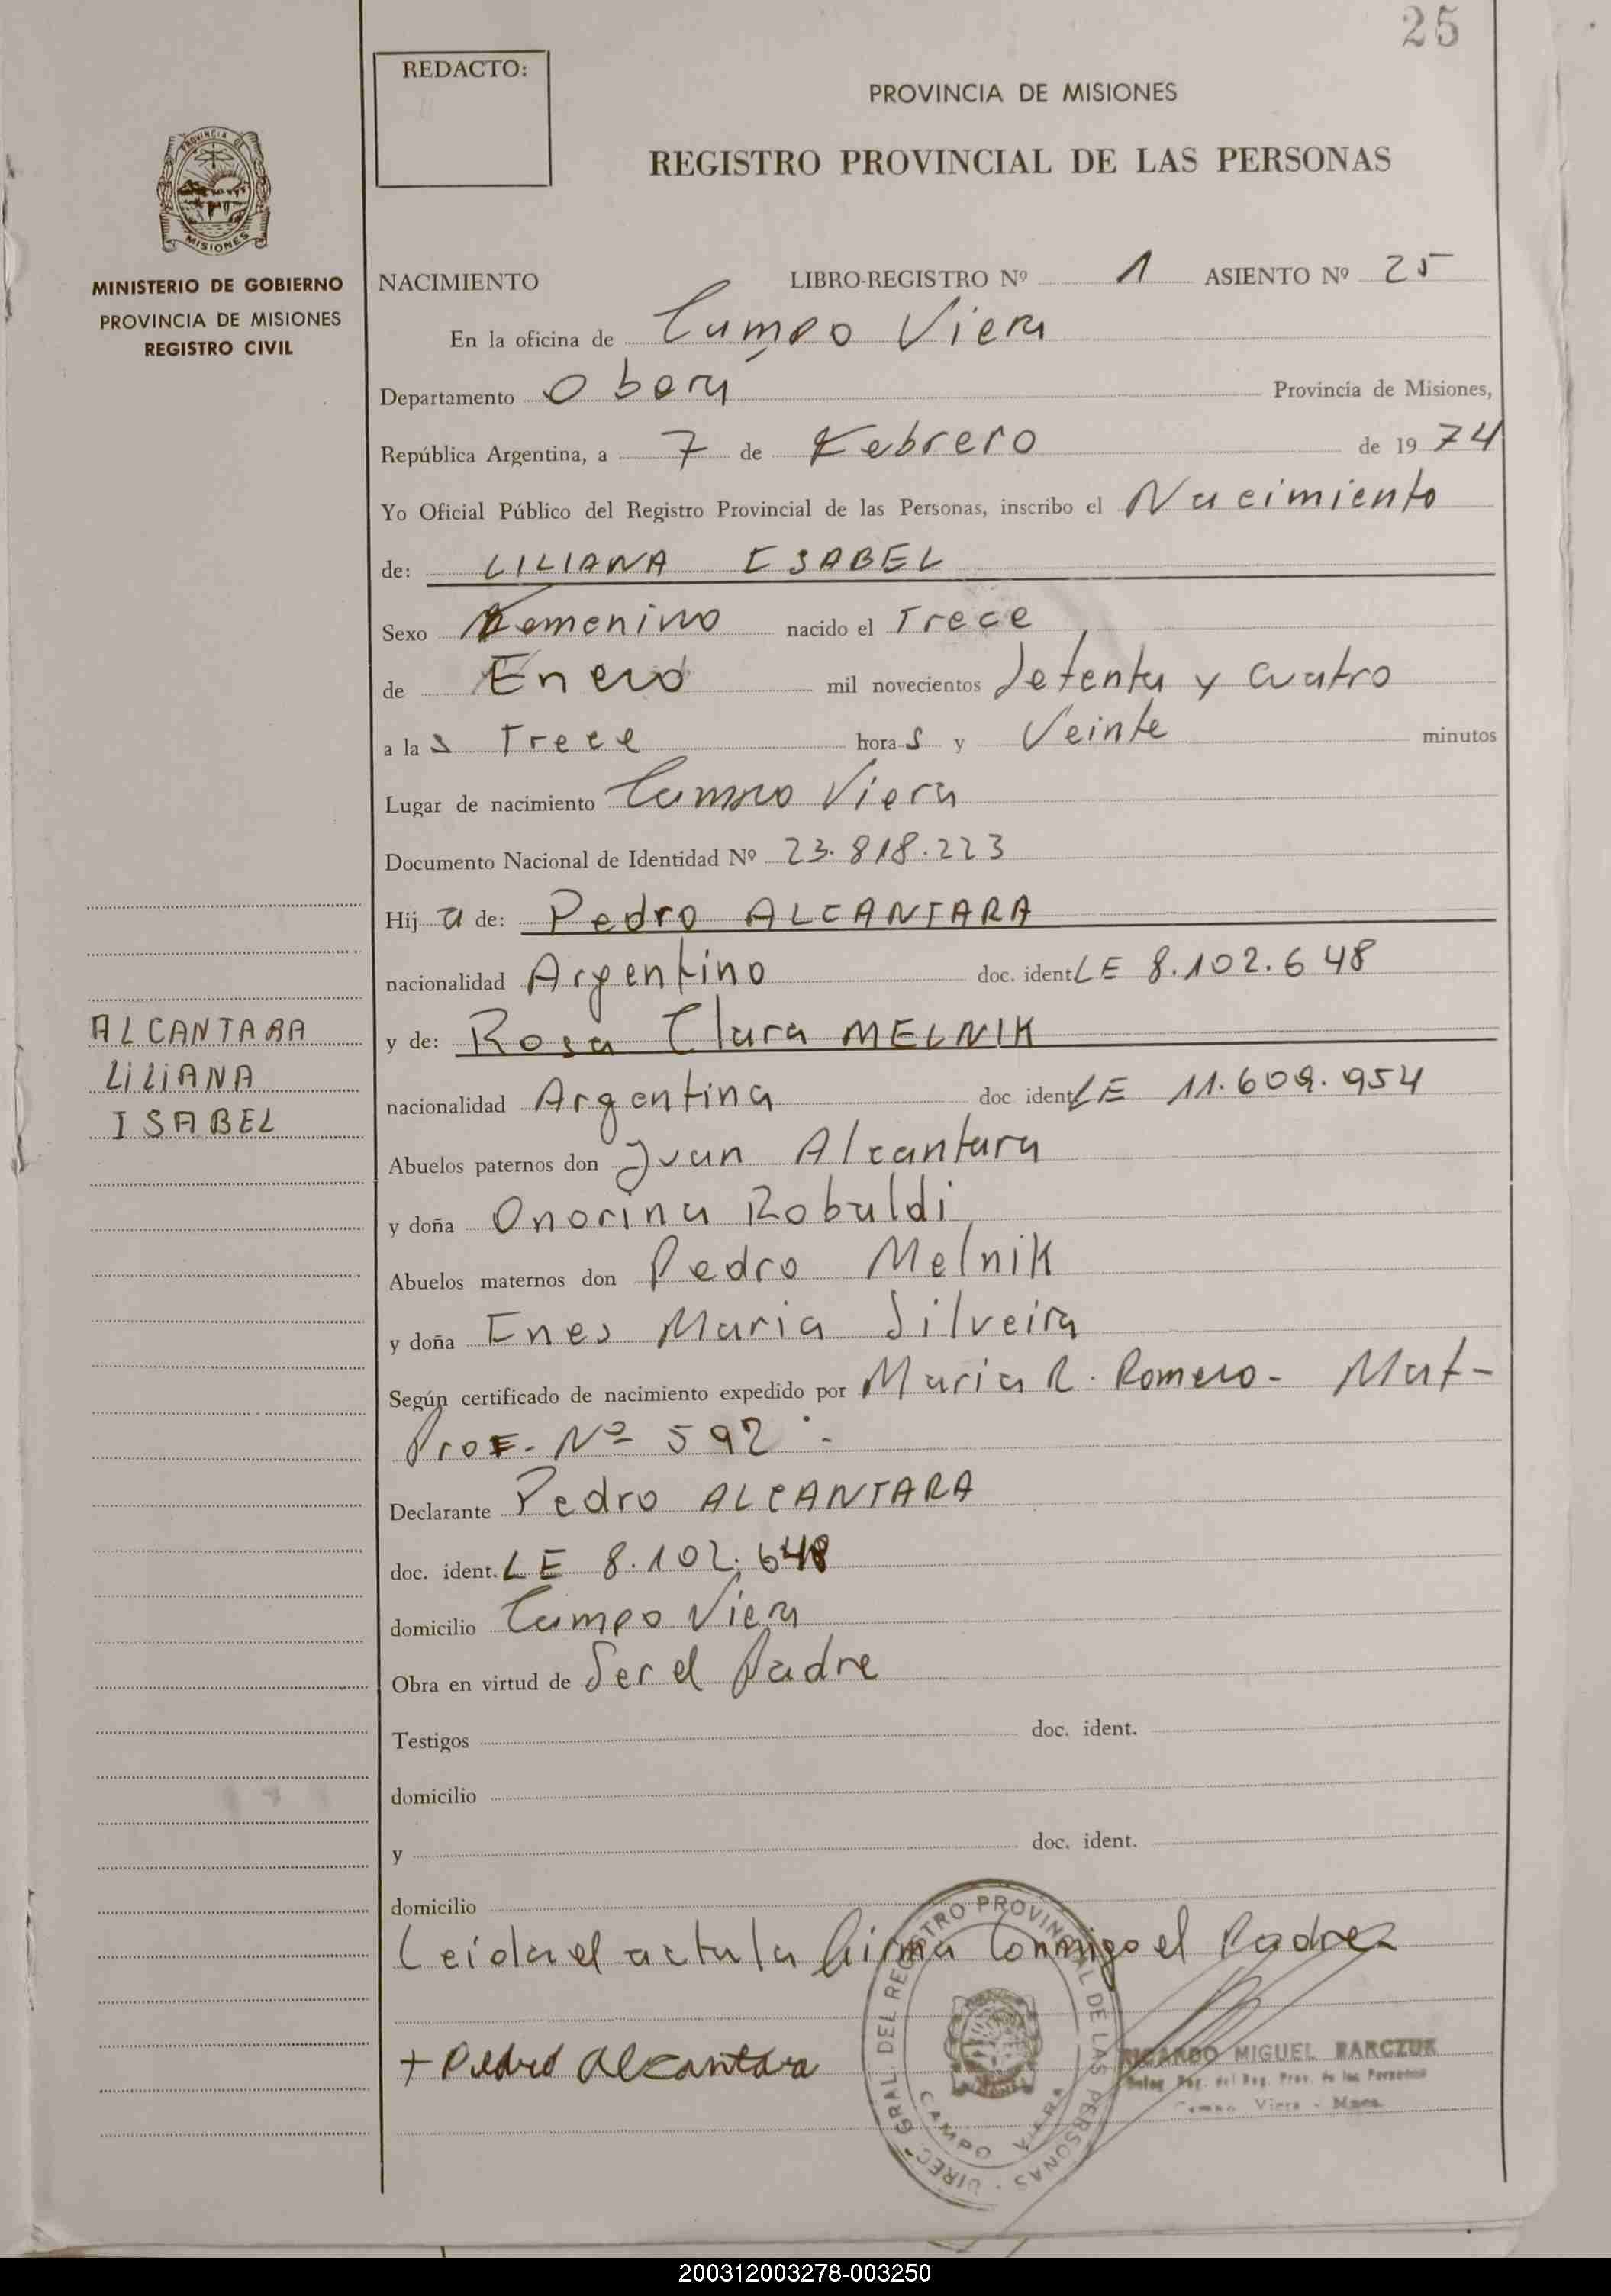 25
REDACTO:
PROVINCIA DE MISIONES
REGISTRO PROVINCIAL DE LAS PERSONAS
PROVINCIA DE
MISIONES
MINISTERIO DE GOBIERNO
PROVINCIA DE MISIONES
REGISTRO CIVIL
NACIMIENTO LIBRO-REGISTRO Nº 1 ASIENTO Nº 25
En la oficina de Campo Viera
Departamento Oberá Provincia de Misiones,
República Argentina, a 7 de Febrero de 1974
Yo Oficial Público del Registro Provincial de las Personas, inscribo el Nacimiento
de: LILIANA ISABEL
Sexo Femenino nacido el Trece
de Enero mil novecientos Setenta y cuatro
a las Trece horas y Veinte minutos
Lugar de nacimiento Campo Viera
Documento Nacional de Identidad Nº 23.818.223
Hija de: Pedro ALCANTARA
nacionalidad Argentino doc. ident LE 8.102.648
y de: Rosa Clara MELNIK
nacionalidad Argentina doc ident LE 11.609.954
Abuelos paternos don Juan Alcantara
y doña Onorina Robaldi
Abuelos maternos don Pedro Melnik
y doña Enes Maria Silveira
Según certificado de nacimiento expedido por Maria R. Romero - Mat-
Prof. Nº 592 -
Declarante Pedro ALCANTARA
doc. ident. LE 8.102.648
domicilio Campo Viera
Obra en virtud de Ser el Padre
Testigos doc. ident.
domicilio
y doc. ident.
domicilio
Leida el acta la firma Conmigo el Padre
+ Pedro Alcantara
ALCANTARA
LILIANA
ISABEL
DIREC. GRAL DEL REGISTRO PROVINCIAL DE LAS PERSONAS
CAMPO VIERA
RICARDO MIGUEL BARCZUK
Reg. del Reg. Prov. de las Personas
Campo Viera - Mnes.
200312003278-003250